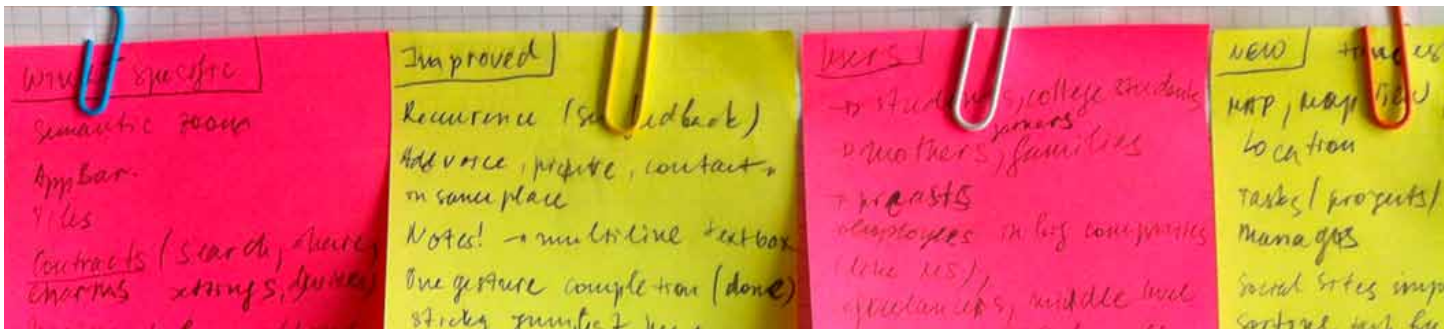 specific
Semantic zoom
AppBar.
Tiles
Contracts (search, share,
Charms settings, devices)
Improved
Recurrence
Add voice, picture, contact,
in same place
Notes! → multiline textbox
One gesture completion (done)
sticky
Users
→ students, college students
gamers
→ mothers, families
employees in big companies
(like us),
freelancers, middle level
NEW
MAP, map
Location
Tasks/projects/
Manager
Social sites